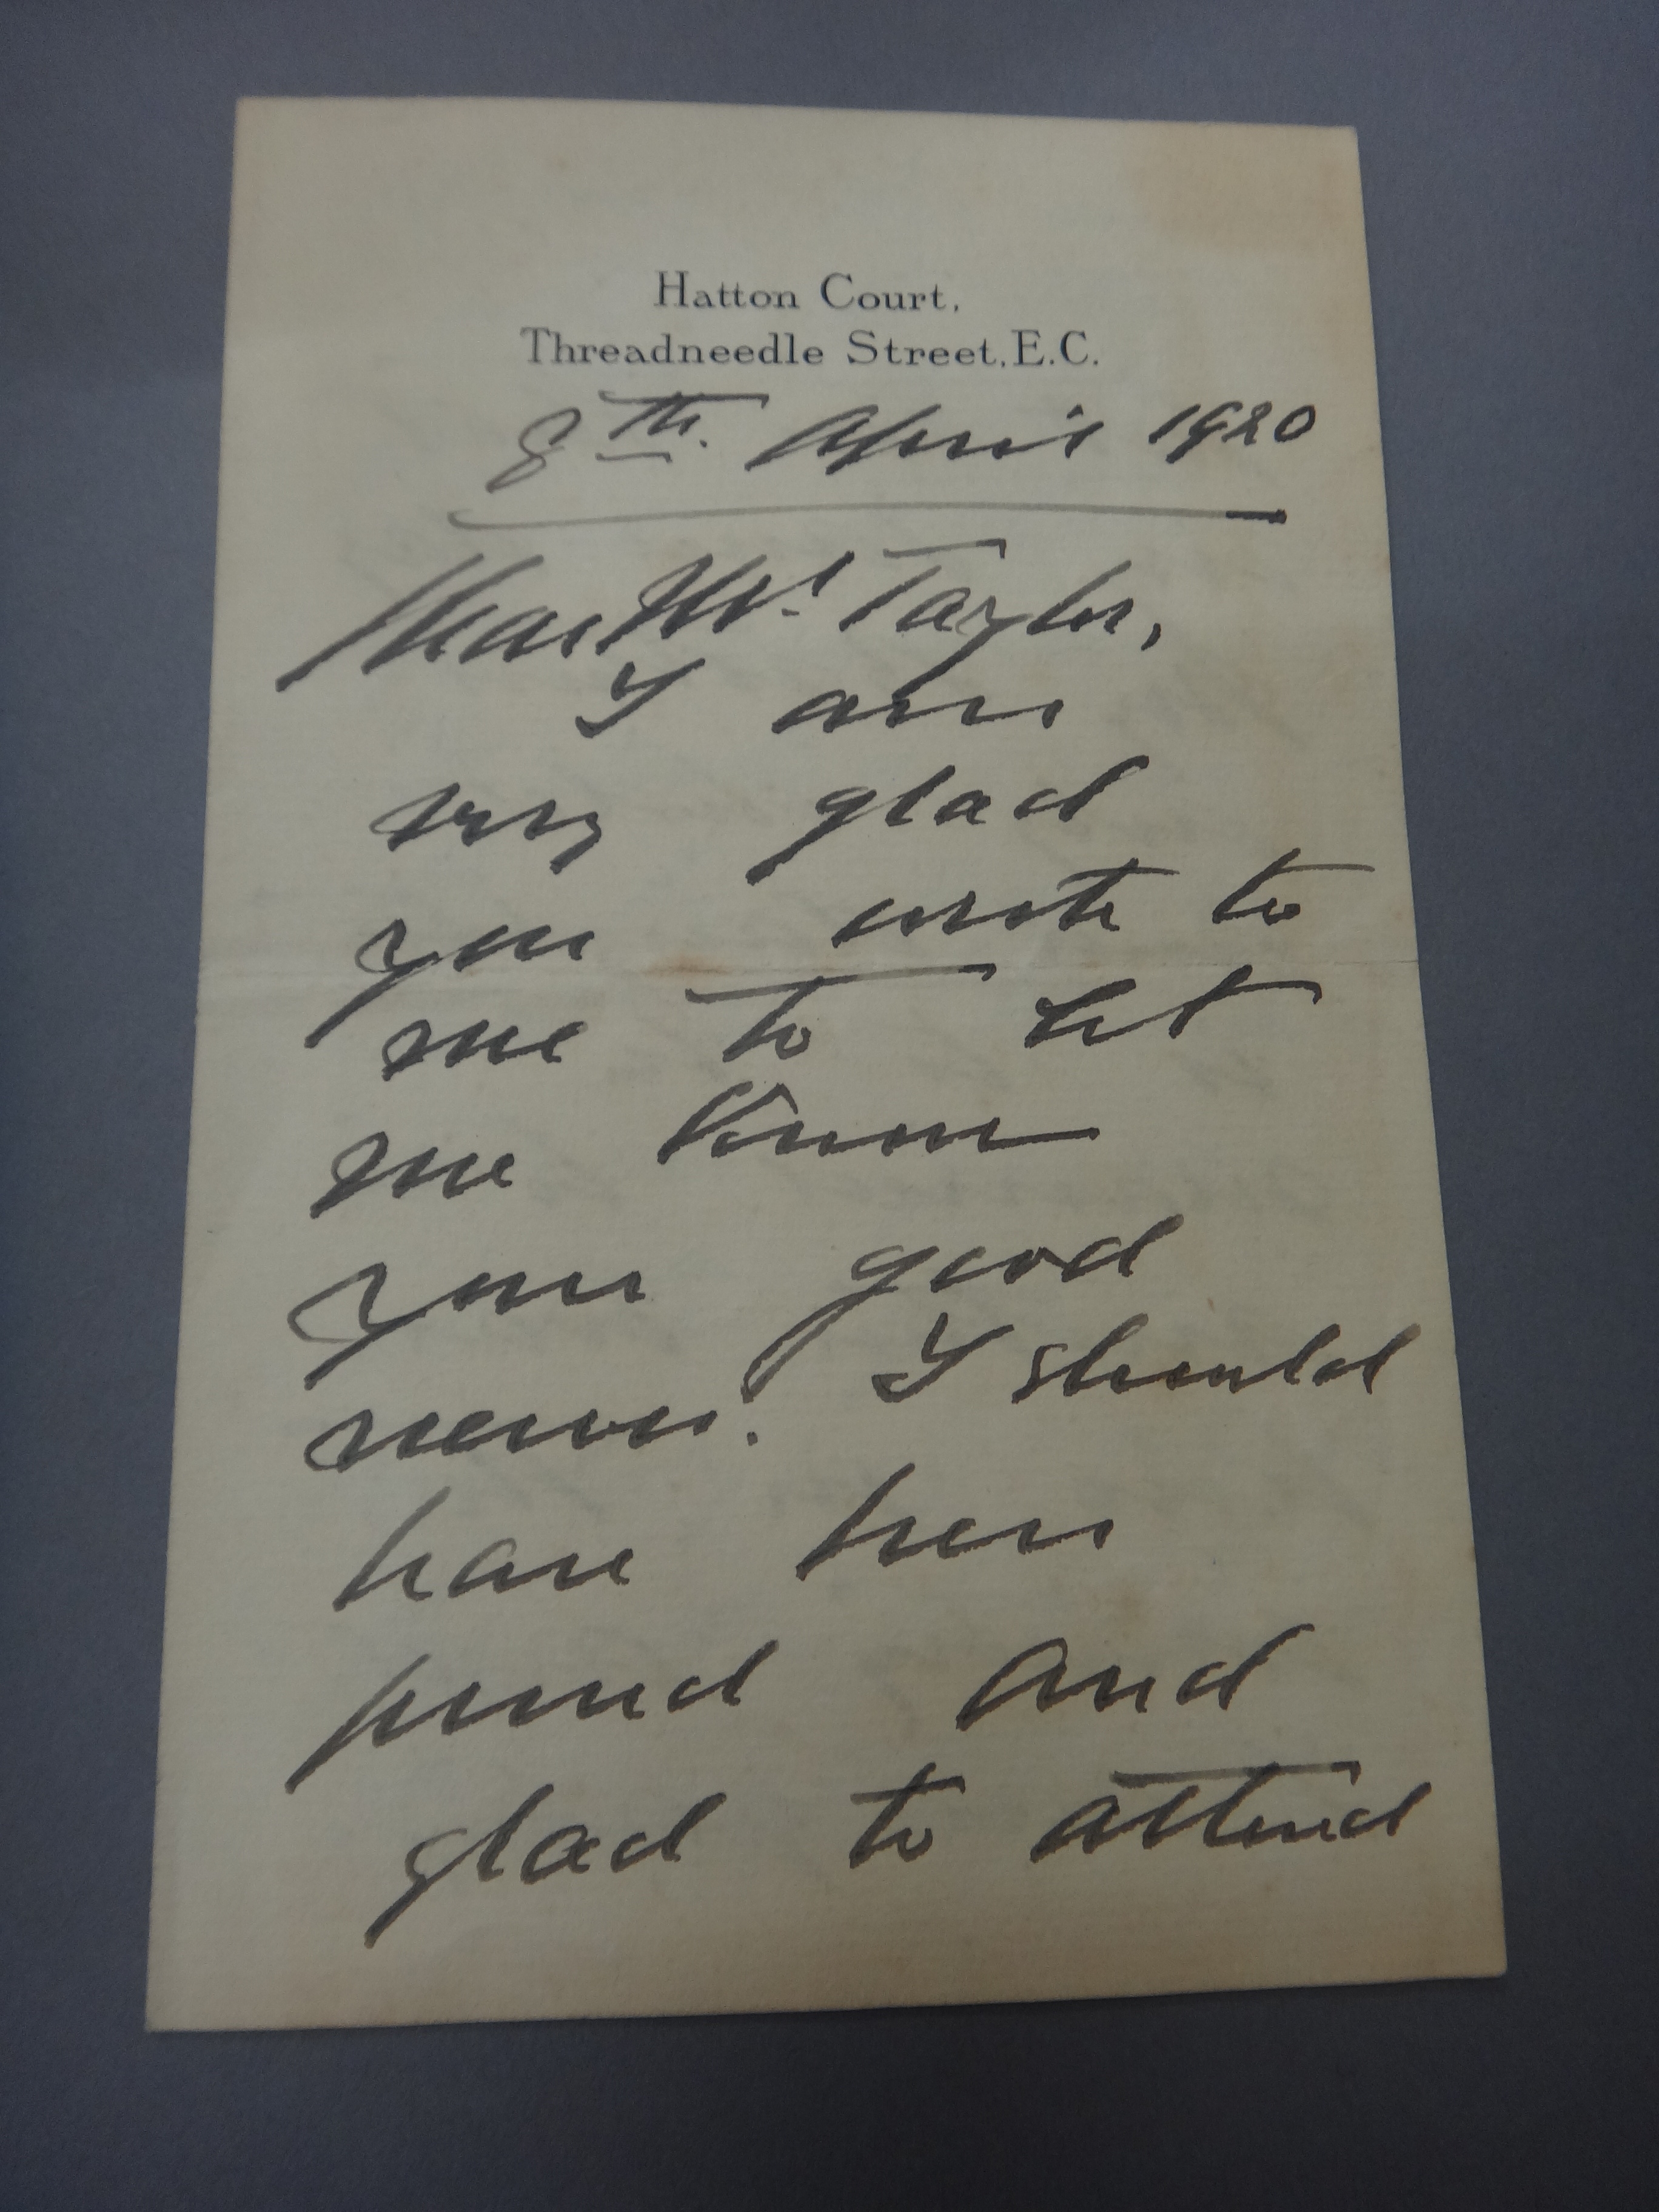 Hatton Court,
Threadneedle Street, E.C.
8th. April 1920
Dear Mr. Taylor,
I am
very glad
you wrote to
me to let
me know
your good
news! I should
have been
proud and
glad to attend